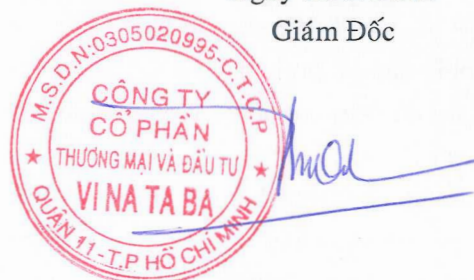 Giám Đốc
M.S.D.N:0305020995-C.T.C.P
CÔNG TY
CỔ PHẦN
THƯƠNG MẠI VÀ ĐẦU TƯ
VI NA TA BA
QUẬN 11-T.P HỒ CHÍ MINH